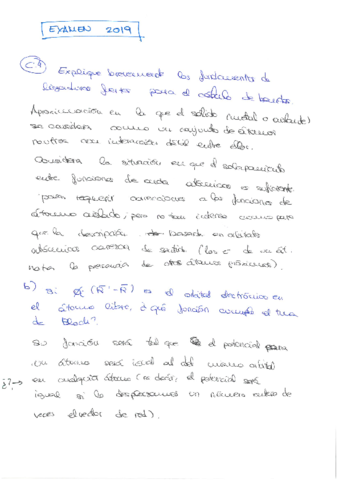 EXAMEN 2019
C.4 Explique brevemente los fundamentos de
ligaduras fuertes para el cálculo de bandas
Aproximación en la que el sólido (metal o aislante)
se considera como un conjunto de átomos
neutros con interacción débil entre ellos.
Considera la situación en que el solapamiento
entre funciones de onda atómicas es suficiente
para requerir correcciones a las funciones de
átomo aislado, pero no tan intenso como para
que la descripción basada en orbitales
atómicos carezca de sentido (los e⁻ de un át.
notan la presencia de otros átomos próximos).
b) Si Ø (R⃗ - R⃗) es el orbital electrónico en
el átomo libre, ¿qué función cumple el tma
de Bloch?
Su función será tal que el potencial para
un átomo será igual al del mismo orbital
¿?→ en cualquier átomo (es decir, el potencial será
igual si lo desplazamos un número entero de
veces el vector de red).